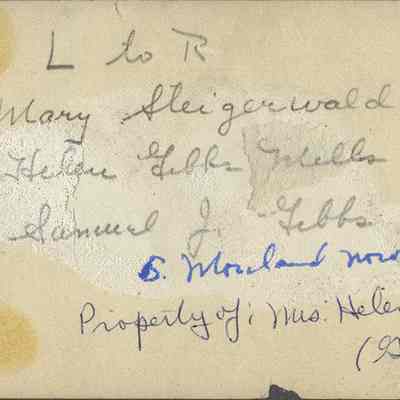 L to R
Mary Steigerwald
Helen Gibbs Mills
Samuel J. Gibbs
S. Moreland
Property of: Mrs. Helen